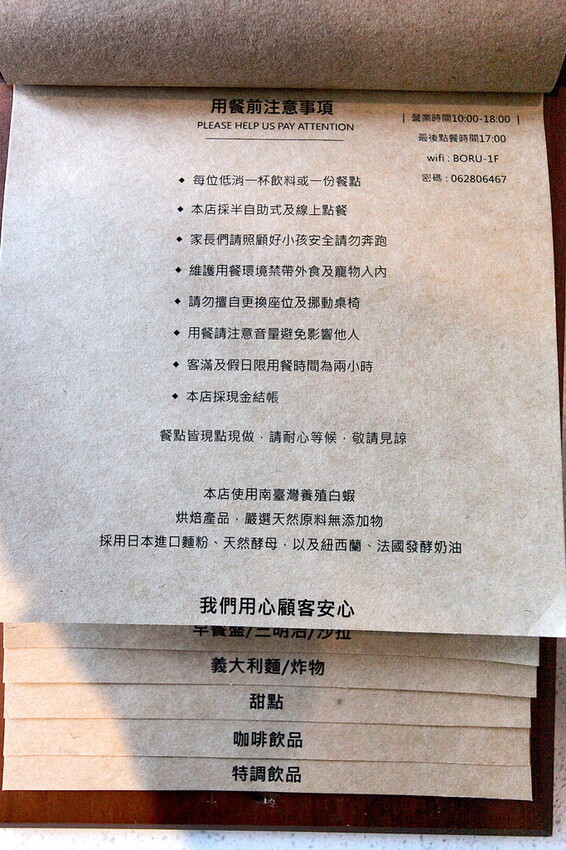 用餐前注意事項
PLEASE HELP US PAY ATTENTION
| 營業時間10:00-18:00 |
最後點餐時間17:00
wifi : BORU-1F
密碼 : 062806467
◆ 每位低消一杯飲料或一份餐點
◆ 本店採半自助式及線上點餐
◆ 家長們請照顧好小孩安全請勿奔跑
◆ 維護用餐環境禁帶外食及寵物入內
◆ 請勿擅自更換座位及挪動桌椅
◆ 用餐請注意音量避免影響他人
◆ 客滿及假日限用餐時間為兩小時
◆ 本店採現金結帳
餐點皆現點現做，請耐心等候，敬請見諒
本店使用南臺灣養殖白蝦
烘焙產品，嚴選天然原料無添加物
採用日本進口麵粉、天然酵母，以及紐西蘭、法國發酵奶油
我們用心顧客安心
早餐盤/三明治/沙拉
義大利麵/炸物
甜點
咖啡飲品
特調飲品